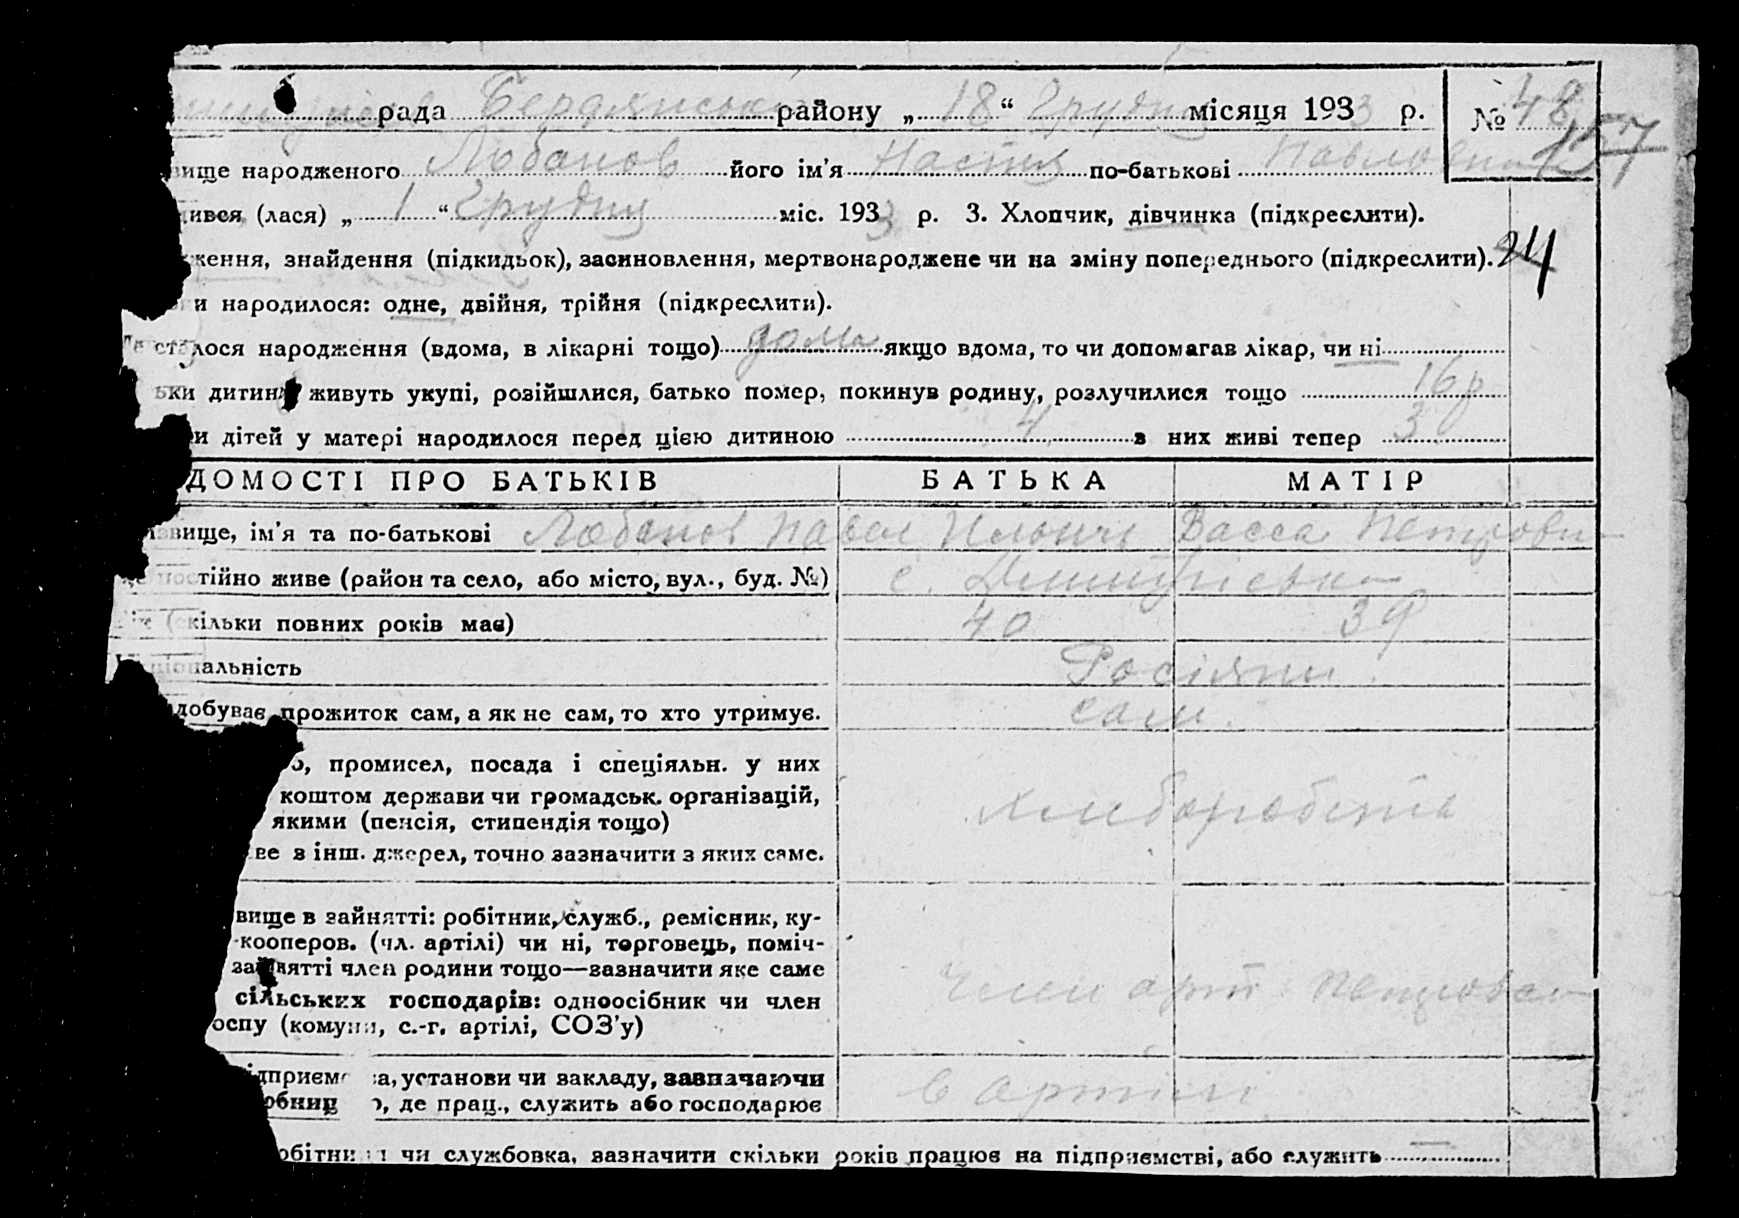 рада Бердянськ району „ 18 “ Грудня місяця 1933 р. № 48
157
вище народженого Лобанов його ім'я Настя по-батькові Павловна
дився (лася) „ 1 “ Грудня міс. 1933 р. 3. Хлопчик, дівчинка (підкреслити).
ження, знайдення (підкидьок), засиновлення, мертвонароджене чи на зміну попереднього (підкреслити). 24
и народилося: одне, двійня, трійня (підкреслити).
сталося народження (вдома, в лікарні тощо) дома якщо вдома, то чи допомагав лікар, чи ні
ьки дитини живуть укупі, розійшлися, батько помер, покинув родину, розлучилися тощо 16 р
и дітей у матері народилося перед цією дитиною 4 з них живі тепер 3
ДОМОСТІ ПРО БАТЬКІВ БАТЬКА МАТІР
звище, ім'я та по-батькові Лобанов Павел Ильич Васса Петровн
постійно живе (район та село, або місто, вул., буд. №) с.
ік (скільки повних років має) 40 39
Національність Росіяни
добуває прожиток сам, а як не сам, то хто утримує. сам.
о, промисел, посада і спеціяльн. у них
коштом держави чи громадськ. організацій,
якими (пенсія, стипендія тощо) хлиборобство
ве з інш. джерел, точно зазначити з яких саме.
вище в зайнятті: робітник, служб., ремісник, ку-
-кооперов. (чл. артілі) чи ні, торговець, поміч-
зайнятті член родини тощо—зазначити яке саме член арт
сільських господарів: одноосібник чи член
оспу (комуни, с.-г. артілі, СОЗ'у)
ідприєм ва, установи чи закладу, зазначаючи в артили
обниц о, де прац., служить або господарює
обітни и чи службовка, зазначити скільки років працює на підприємстві, або служить —